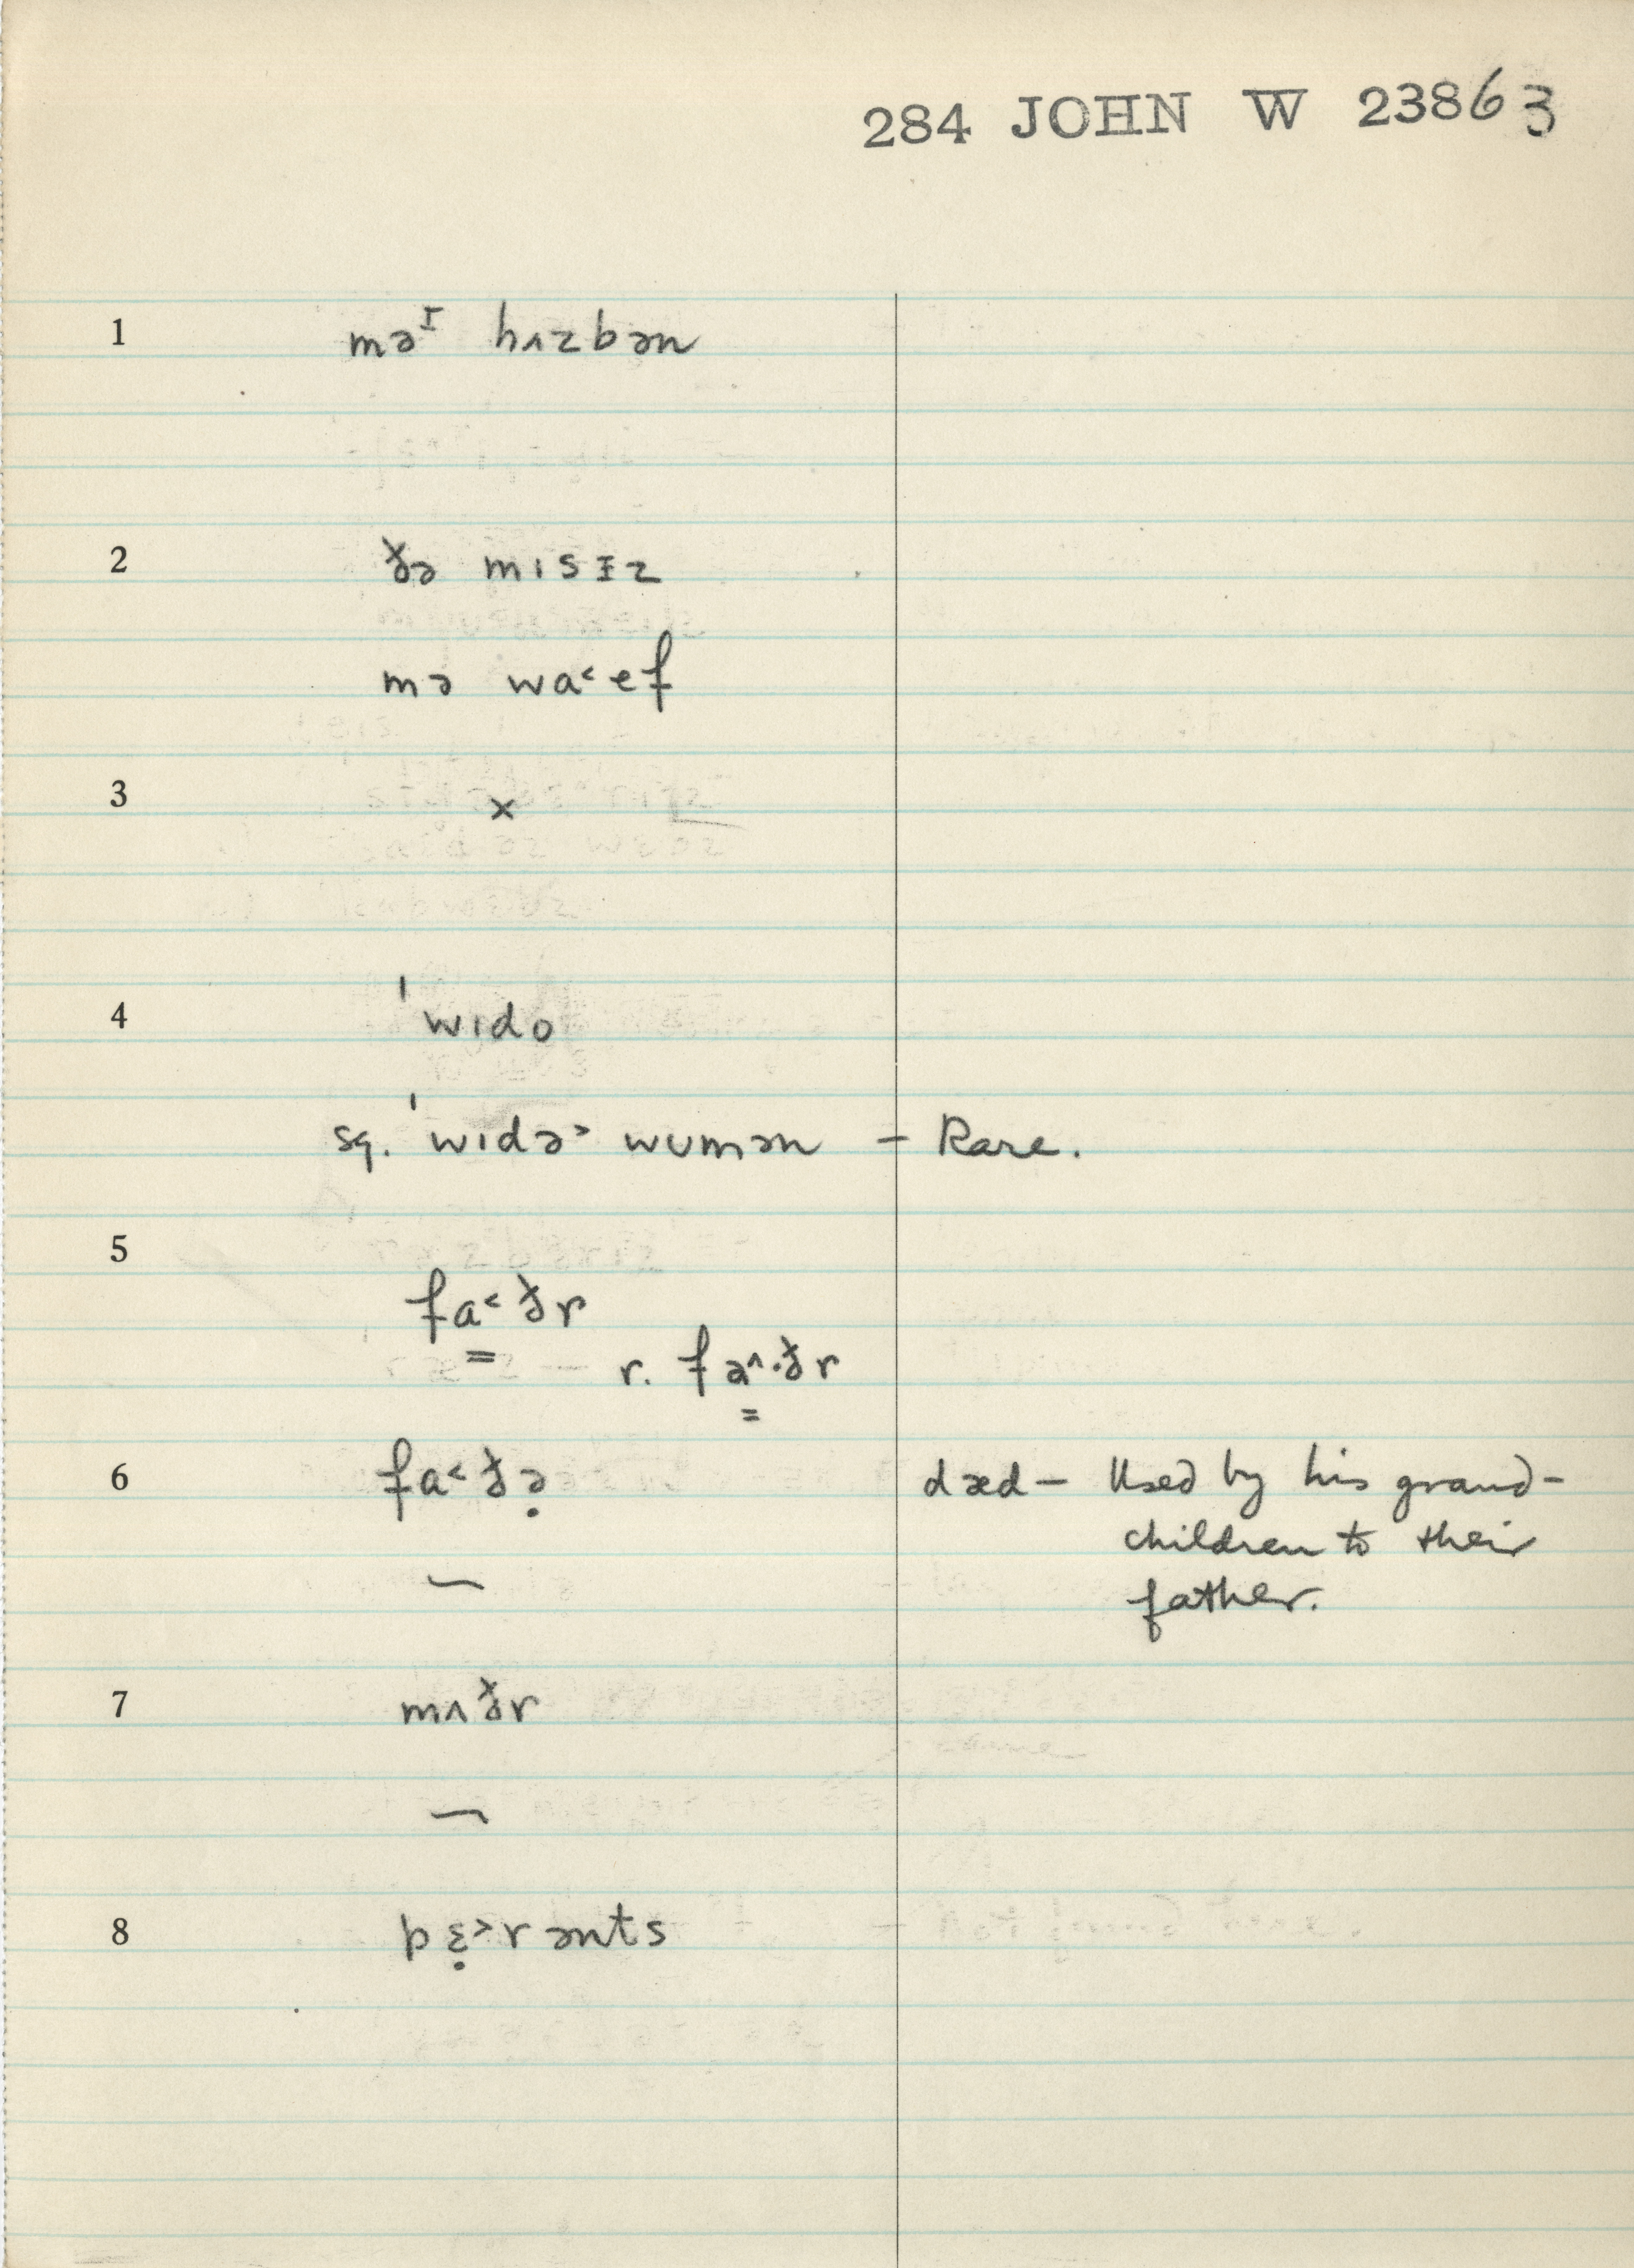 284 JOHN W 23863
1 məᶦ hʌzbən
2 ðə mɪsɪ̵z
mə wa˂ef
3 ×
4 ˈwɪdo
sq. ˈwɪdə˃ wumən – Rare.
5
fa˂ðr
r. fa˄·ðr
6 fa˂ðə̣ dæd – Used by his grand-
children to their
father.
–
7 mʌðr
–
8 pɛ̣˃rənts